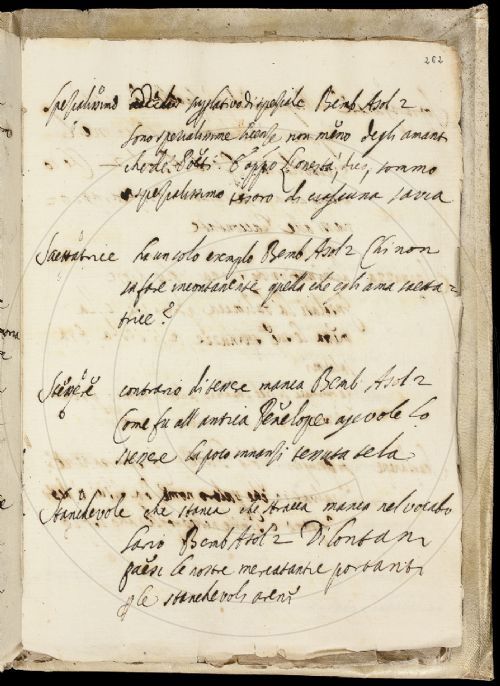 282
Spezialissimo superlativo di speziale Bemb Asol 2
sono spezialissime licenze non meno degli amanti
che de Poeti. L'onestà, dico, sommo
e spezialissimo tesoro di ciascuna savia
Saettatrice ha un solo exemplo Bemb Asol 2 Chi non
sa fare incontanente quella che egli ama saetta=
trice?
Stessere contrario di tessere manca Bemb Asol 2
Come fu all'antica Penelope agevole lo
stessere la poco innanzi tessuta tela.
Stanchevole che stanca che stracca manca nel vocabo
lario Bemb Asol 2 Di lontani
paesi le nostre mercatantie portanti
p le stanchevoli arene